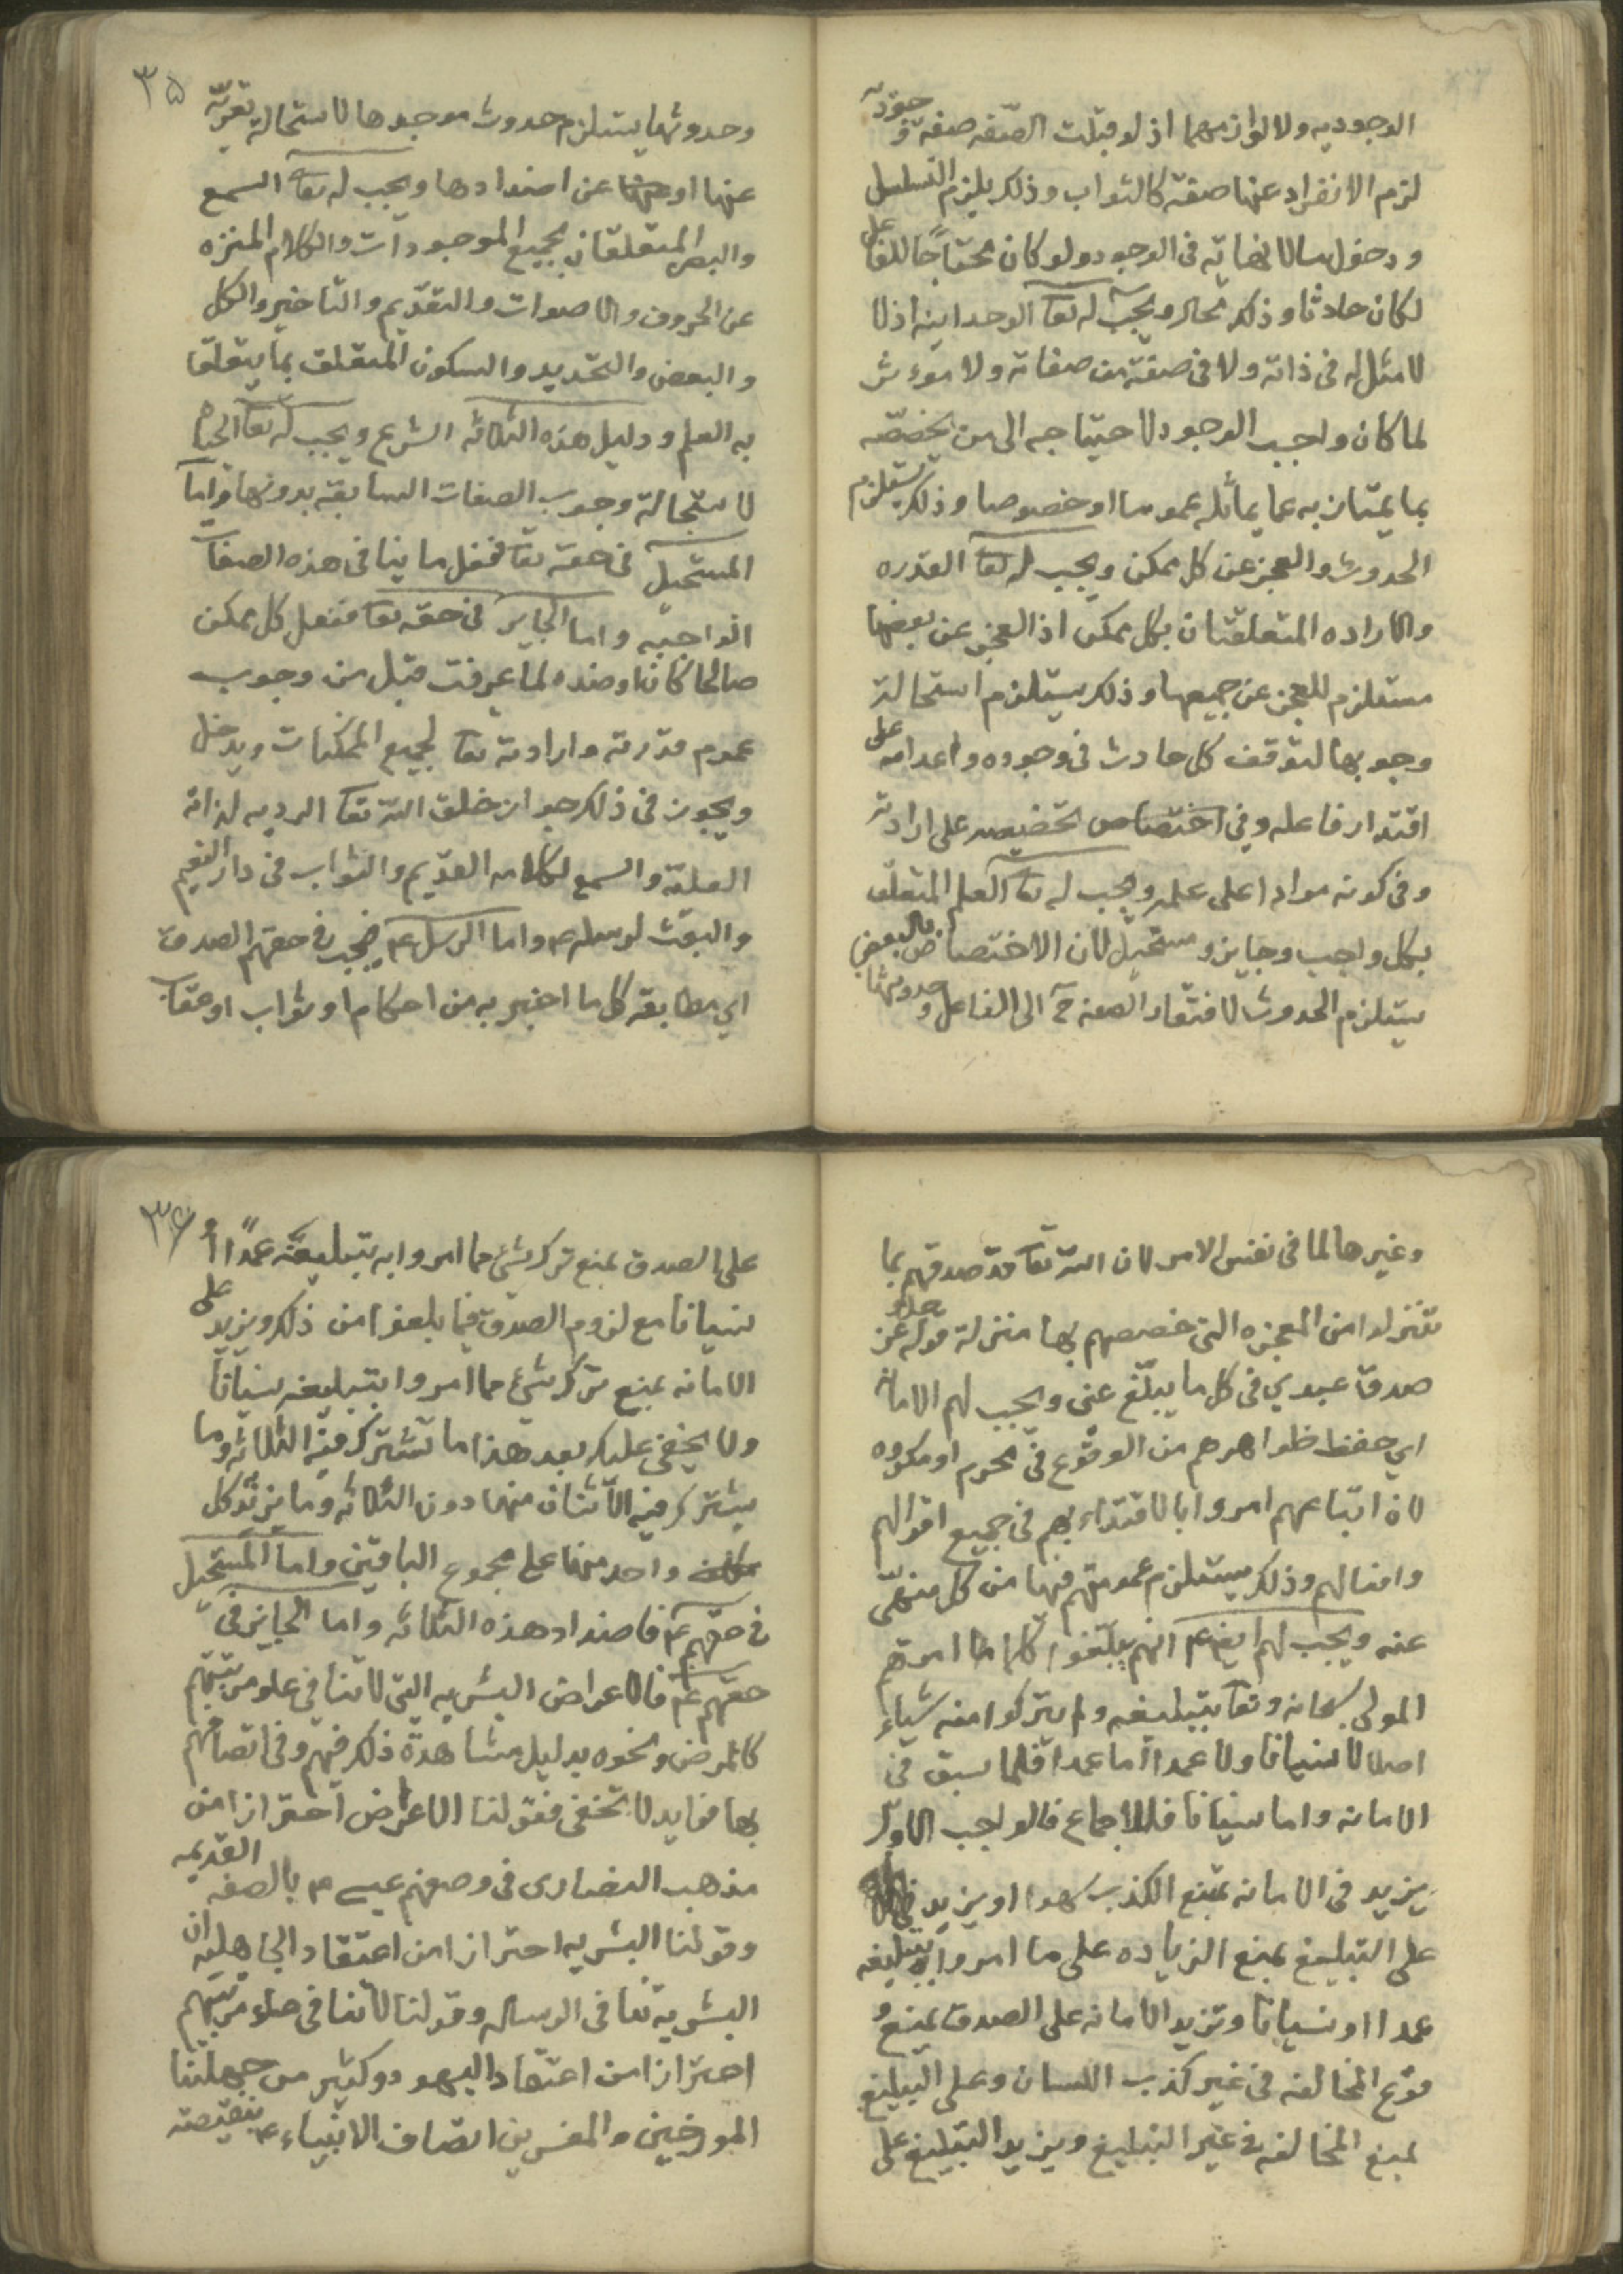 الوجوديه ولا لوازمهما اذ لو قبلت الصفه صفة وجوديه
لزم الانفراد عنها صفة كالثواب وذلك يلزم التسلسل
ودخول مالا نهاية فى الوجود ولو كان محتاجا للفاعل
لكان حادثا وذلك محال ويجب له تعا الوحدانيه اذ لا
لا مثل له فى ذاته ولا فى صفة من صفاته ولا موءثر
لما كان واجب الوجود لاحتياجه الى من يخصصه
بما يمتاز به عما يماثله عموما او خصوصا وذلك يستلزم
الحدوث والعجز عن كل ممكن ويجب له تعا القدره
والاراده المتعلقتان بكل ممكن اذ العجز عن بعضها
مستلزم للعجز عن جميعها وذلك يستلزم استحالة
وجوبها لتوقف كل حادث فى وجوده واعدامه على
اقتدار فاعله وفى اختصاص تخصيصه على ارادته
وفى كونه مرادا على علمه ويجب له تعا العلم المتعلق
بكل واجب وجايز ومستحيل لان الاختصاص بالبعض
يستلزم الحدوث لافتقار الصفه ح الى الفاعل وحدوثها
٣٥
وحدوثها يستلزم حدوث موجدها لاستحالة تعريه
عنها او عن اضدادها ويجب له تعا السمع
والبصر المتعلقان بجميع الموجودات والكلام المنزه
عن الحروف والاصوات والتقديم والتاخير والكل
والبعض والتحديد والسكون المتعلق بما يتعلق
به العلم ودليل هذه الثلاثه الشرع ويجب له تعا الحياه
لاستحالة وجوب الصفات السابقة بدونها واما
المستحيل فى حقه تعا فكل ما ينافى هذه الصفات
الواجبه واما الجايز فى حقه تعا ففعل كل ممكن
صالحا كان او ضده لما عرفت قبل من وجوب
عموم قدرته وارادته تعا لجميع الممكنات ويدخل
ويجوز فى ذلك جواز خلق الله تعا الرديه لذاته
العليه والسمع لكلامه القديم والثواب فى دار النعيم
والبعث لرسله ع واما الرسل ع فيجب فى حقهم الصدق
اي مطابقة كل ما اخبر به من احكام او ثواب او عقاب
وغيرها لما فى نفس الامر لان الله تعا قد صدقهم بما
تنزلوا من المعجزه التى خصصهم بها منزلة قوله عز وجل
صدق عبدي فى كل ما يبلغ عنى ويجب لهم الامانة
اي حفظ ظواهرهم من الوقوع فى محرم او مكروه
لان اتباعهم امروا بالاقتداء بهم فى جميع اقوالهم
وافعالهم وذلك يستلزم عصمتهم فيها من كل منهى
عنه ويجب لهم ايض ع انهم يبلغوا كل ما امرهم
المولى سبحانه وتعا بتبليغه ولم يتركوا منه شياء
اصلا لا نسيانا ولا عمدا اما عمدا فلما سبق فى
الامانه واما نسيانا فللاجماع فالواجب الاول
يزيد فى الامانه بمنع الكذب سهوا او يزيد
على التبليغ بمنع الزياده على ما امروا بتبليغه
عمدا او نسيانا وتزيد الامانه على الصدق بمنع و
قوع المخالفه فى غير كذب اللسان وعلى التبليغ
بمنع المخالفه فى غير التبليغ ويزيد التبليغ على
٣٦
على الصدق بمنع ترك شئ مما امروا به بتبليغه عمدا او
نسيانا مع لزوم الصدق فيما بلغوا من ذلك ويزيد على
الامانه بمنع ترك شئ مما امروا بتبليغه نسيانا
ولا يخفى عليك بعد هذا ما تشترك فيه الثلاثه وما
يشترك فيه الاثنان منها دون الثلاثه وما يزيد كل
واحد منها على مجموع الباقين واما المستحيل
فى حقهم ع فاضداد هذه الثلاثه واما الجايز فى
حقهم ع فالاعراض البشريه التى لا تنافى علو مرتبتهم
كالمرض ونحوه بدليل مشاهدة ذلك فيهم وفى اتصافهم
بها فوايد لا تخفى فقولنا الاعراض احترازا من
مذهب النصارى فى وصفهم عيسى م بالصفه القديمه
وقولنا البشريه احترازا من اعتقاد الجاهليه ان
البشرية تنافى الرساله وقولنا لا تنافى علو مرتبتهم
احترازا من اعتقاد اليهود وكثير من جهلتنا
المورخين والمفسرين اتصاف الانبياء ع بنقيصته